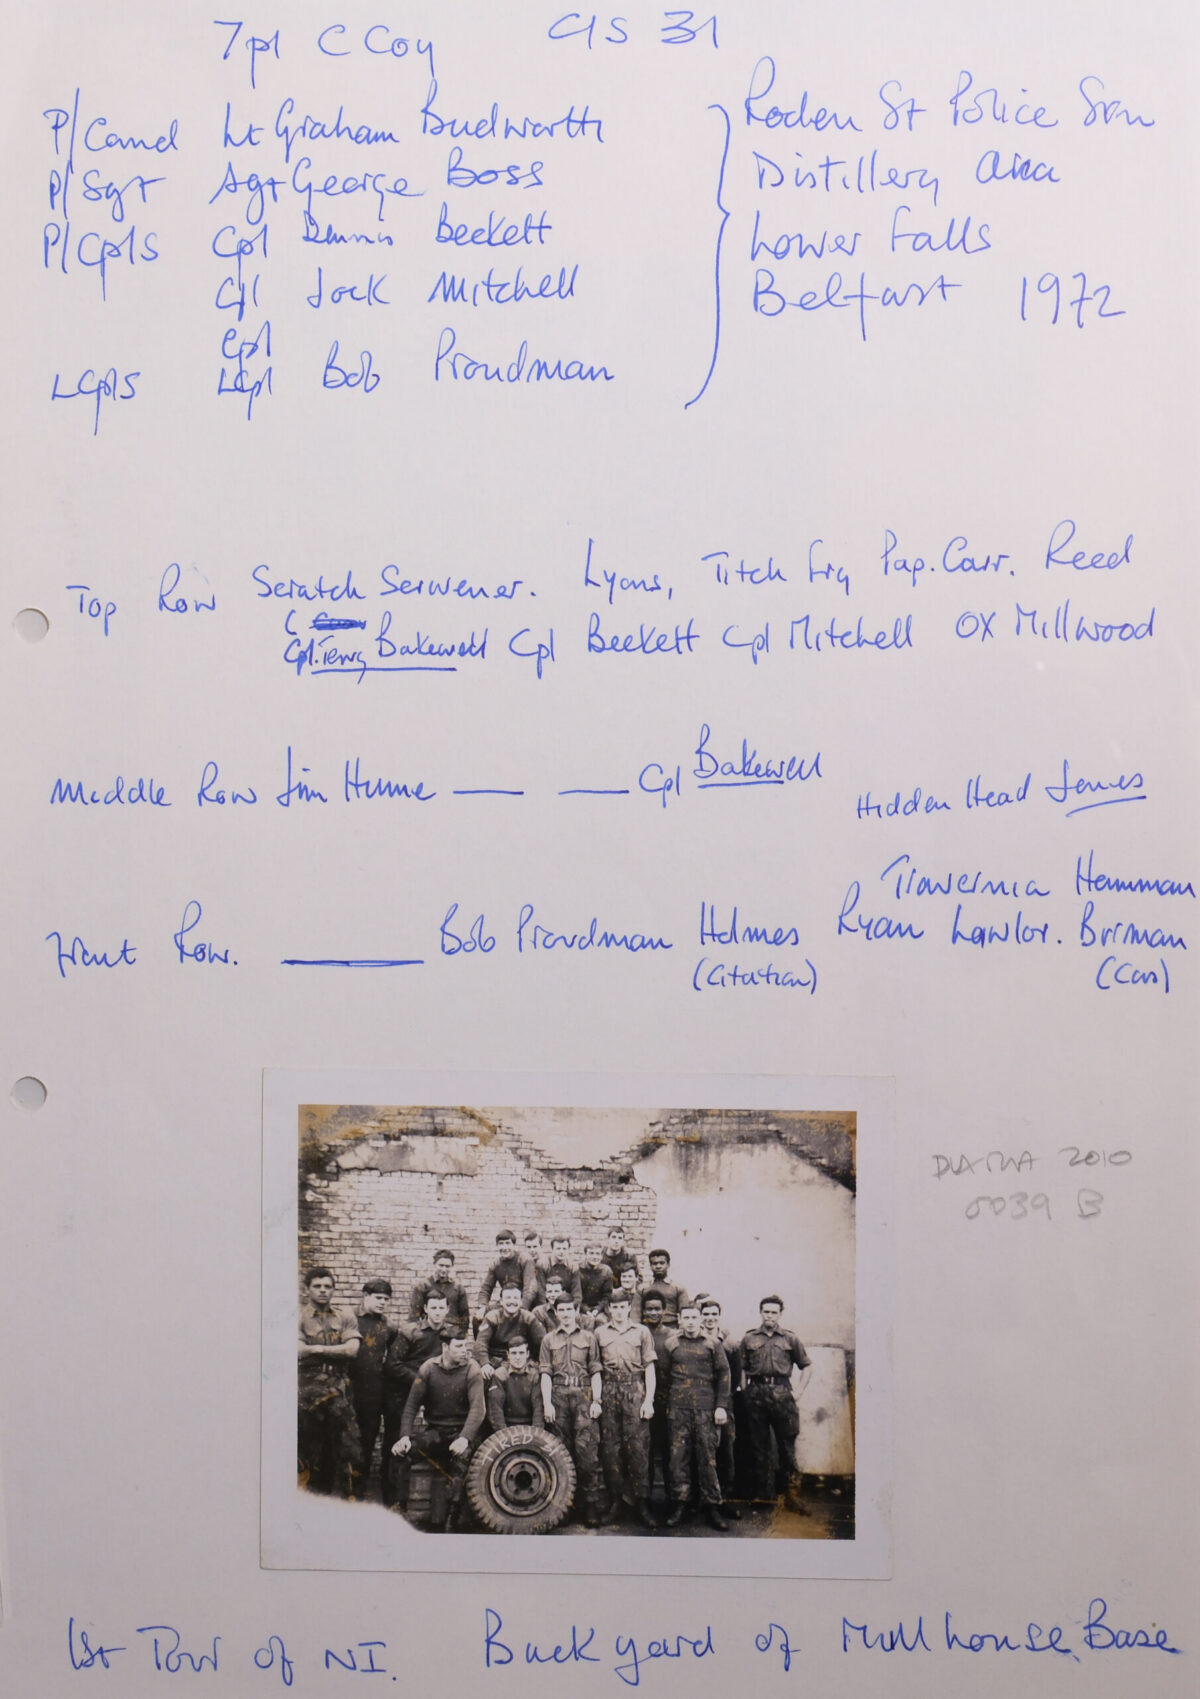 7pl C Coy C/S 31
P/Comd Lt Graham Budworth
P/Sgt Sgt George Boss
P/Cpls Cpl Dennis Beckett
Cpl Jock Mitchell
Cpl
LCpls LCpl Bob Proudman
Roden St Police Stn
Distillery area
Lower Falls
Belfast 1972
Top Row Scratch Scrivener. Lyons, Titch Fry Pap. Carr. Reed
C
Cpl. Terry Bakewell Cpl Beckett Cpl Mitchell OX Millwood
Middle Row Jim Hume — — Cpl Bakewell
Hidden Head Jones
Hamman
Front Row. — Bob Proudman Holmes Ryan Lawlor. Birman
(Citation) (Cas)
2010
0039 B
TIRED 31
1st Tour of NI. Back yard of Millhouse Base